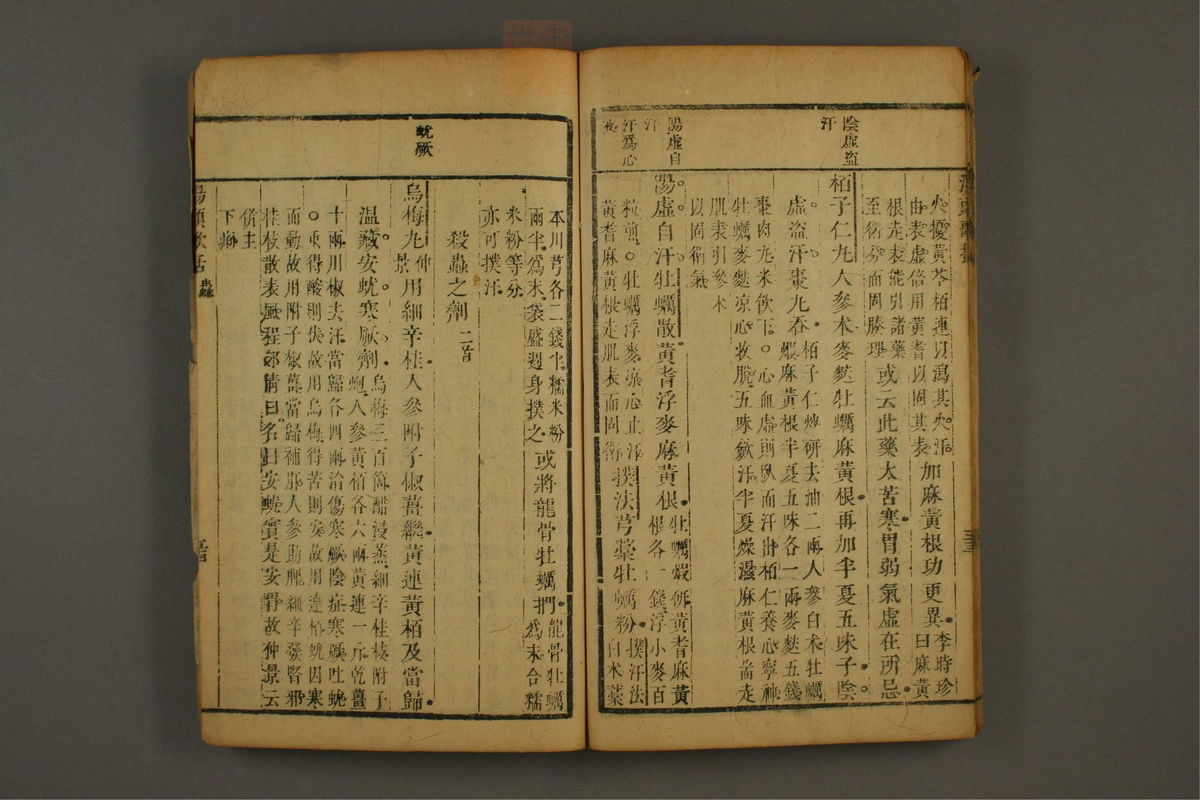 陰虛盜
汗
陽虛自
汗
汗爲心
液
火擾黃芩柏連以瀉其火汗
由表虛倍用黃耆以固其表
加麻黃根功更異
李時珍
曰麻黃
根走表能引諸藥
至衛分而固腠理
或云此藥太苦寒胃弱氣虛在所忌
栢子仁丸人參朮麥麩牡蠣麻黃根再加半夏五味子陰
虛盜汗棗丸吞
栢子仁炒研去油二兩人參白朮牡蠣
煆麻黃根半夏五味各一兩麥麩五錢
棗肉丸米飲下○心血虛則臥而汗出栢仁養心寧神
牡蠣麥麩凉心收脫五味斂汗半夏燥濕麻黃根耑走
肌表引參朮
以固衛氣
陽虛自汗牡蠣散黃耆浮麥麻黃根
牡蠣煆研黃耆麻黃
根各一錢浮小麥百
粒煎○牡蠣浮麥凉心止汗
黃耆麻黃根走肌表而固衛
撲法芎藁牡蠣粉
撲汗法
白朮藁
蚘厥
本川芎各二錢半糯米粉
兩半爲末袋盛週身撲之
或將龍骨牡蠣捫
龍骨牡蠣
爲末合糯
米粉等分
亦可撲汗
殺蟲之劑 二首
烏梅丸
仲
景
用細辛桂人參附子椒薑繼黃連黃栢及當歸
溫藏安蚘寒厥劑
烏梅三百箇醋浸蒸細辛桂枝附子
炮人參黃栢各六兩黃連一斤乾薑
十兩川椒去汗當歸各四兩治傷寒厥陰症寒厥吐蚘
○蚘得酸則伏故用烏梅得苦則安故用連栢蚘因寒
而動故用附子椒薑當歸補肝人參助脾細辛發腎邪
桂枝散表風程郊倩曰名曰安蚘實是安胃故仲景云
併主
下痢
湯頭歌括 蟲